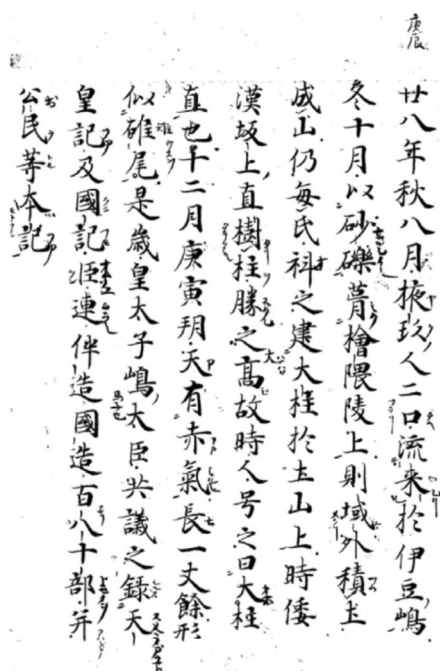 庚辰
廿八年秋八月掖玖人二口流来於伊豆嶋
冬十月以砂礫葺檜隈陵上則域外積土
成山仍每氏科之建大柱於土山上時倭
漢坂上直樹柱勝之太高故時人号之曰大柱
直也十二月庚寅朔天有赤氣長一丈餘形
似雉尾是歳皇太子嶋大臣共議之錄天
皇記及國記臣連伴造國造百八十部并
公民等本記